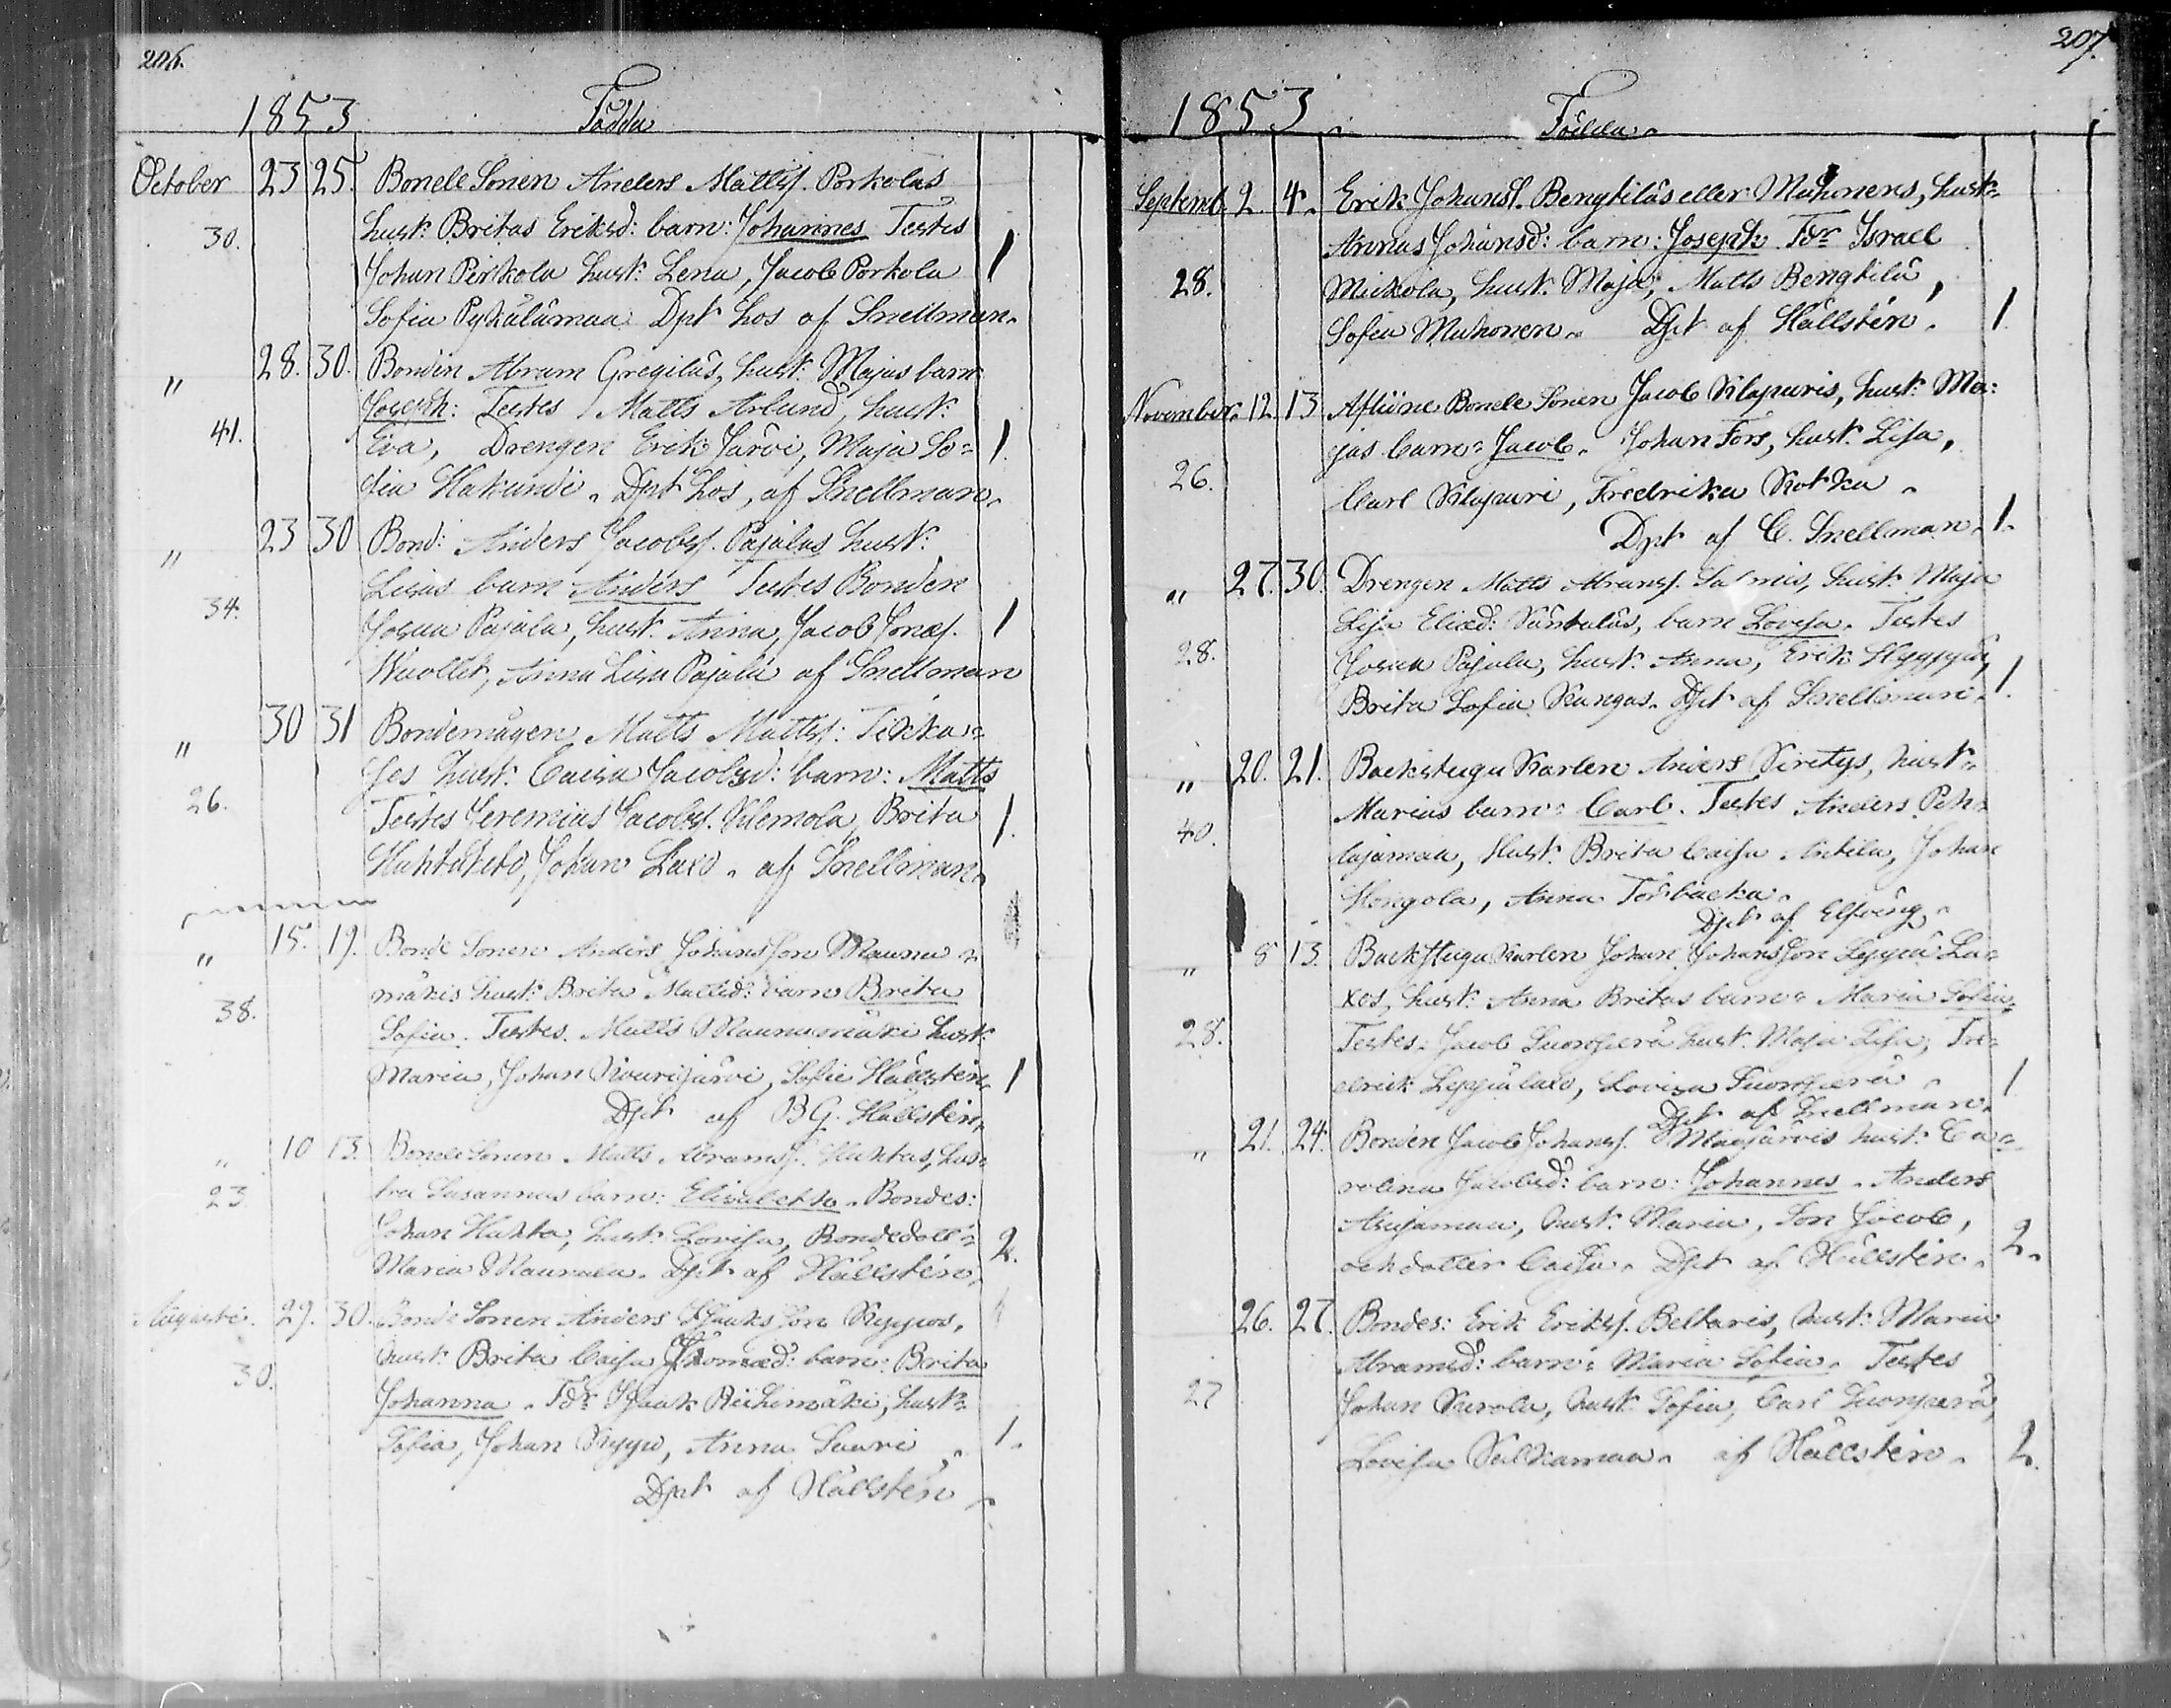 206.
1853 Födda
October 23 25. Bonde Sonen Anders Mattss. Porkolas
hust: Britas Eriksd: barn: Johannes Testes
30.
Johan Perkola hust: Lena, Jacob Porkola 1
Sofia Pyhälämaa Dpt hos af Snellman.
" 28. 30. Bonden Abram Gregilas, hust: Majas barn
Joseph: Testes Matts Aslund, hust:
41.
Eva, Drengen Erik Järvi, Maja So= 1.
fia Hakundi. Dpt hos, af Snellman.
" 23 30 Bond: Anders Jacobss. Pajalas hust:
Lisas barn Anders Testes Bonden
34.
Josua Pajala, hust: Anna, Jacob Jonæs. 1
Wuollet, Anna Lisa Pajala af Snellman
" 30 31 Bondemågen Matts Mattss: Tikka=
jes hust: Caisa Jacobsd: barn: Matts
26.
Testes Jeremias Jacobss. Klemola, Brita 1.
Huhtaketo, Johan Laxo. af Snellman.
" 15. 19. Bonde Sonen Anders Johansson Maunu=
mäkis hust: Brita Mattsd: barn Brita
38.
Sofia. Testes. Matts Maunumäki hust:
Maria, Johan Kourijärvi, Sofie Hällsten. 1
Dpt af B G. Hällsten.
" 10 13. Bonde Sonen Matts Abramss. Huhtas, hus=
tru Susannas barn: Elisabeth. Bondes:
23
Johan Huhta, hust: Lovisa, Bondedott= 2.
Maria Maunula. Dpt af Hällsten,
Augusti. 29. 30. Bonde Sonen Anders Isaksson Kyyros,
hust: Brita Caisa Thomæd: barn: Brita
30.
Johanna. Fdr Isaak Reihimäki, hust:
Sofia, Johan Kyyro, Anna Suuri, 1.
Dpt af Hällsten.
207.
1853. Födda.
Septemb. 2. 4. Erik Johanss. Bengtilas eller Muhonens, hust:
Annas Johansd: barn: Joseph Fdr Israel
28.
Mickola, hust: Maja, Matts Bengtilä,
Sofia Muhonen. Dpt af Hällsten. 1.
November. 12. 13 Aflidne Bonde Sonen Jacob Klapuris, hust: Ma=
jas barn: Jacob. Johan Fors, hust: Lisa,
26.
Carl Klapuri, Fredrika Kotka.
Dpt af C. Snellman. 1.
" 27. 30. Drengen Matts Abramss. Salmis, hust: Maja
Lisa Eliæd: Säntalas, barn Lovisa. Testes
28.
Josua Pajala, hust: Anna, Erik Hyyppä,
Brita Sofia Kangas. Dpt af Snellman. 1.
" 20. 21. Backstugu Karlen Anders Kiretys, hust:
Marias barn: Carl. Testes Anders Peh=
40.
lajamaa, Hust: Brita Caisa Antila, Johan
Hongola, Anna Torbacka.
Dpt af Elfving.
" 8 13. Backstugu Karlen Johan Johansson Leppä La=
xos, hust: Anna Britas barn: Maria Sofia.
28.
Testes: Jacob Luomperä hust: Maja Lisa, Fre=
drik Leppälaxo, Lovisa Luomperä. 1
Dpt af Snellman.
" 21. 24. Bonden Jacob Johanss. Mäejärvis hust: Ca=
rolina Jacobsd: barn: Johannes. Anders
Asujamaa, hust: Maria, Son Jacob, 2.
och dotter Caisa. Dpt af Hällsten.
26. 27. Bondes: Erik Erikss. Beltaris, hust: Maria
Abramsd: barn: Maria Sofia. Testes
27
Johan Kurola, hust: Sofia, Carl Luomperä,
Lovisa Salkamaa. af Hällsten. 2.